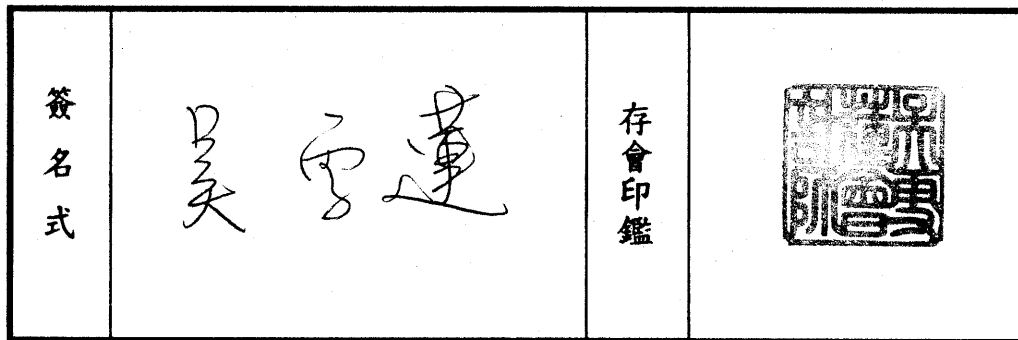 簽名式
吳雪蓮
存會印鑑